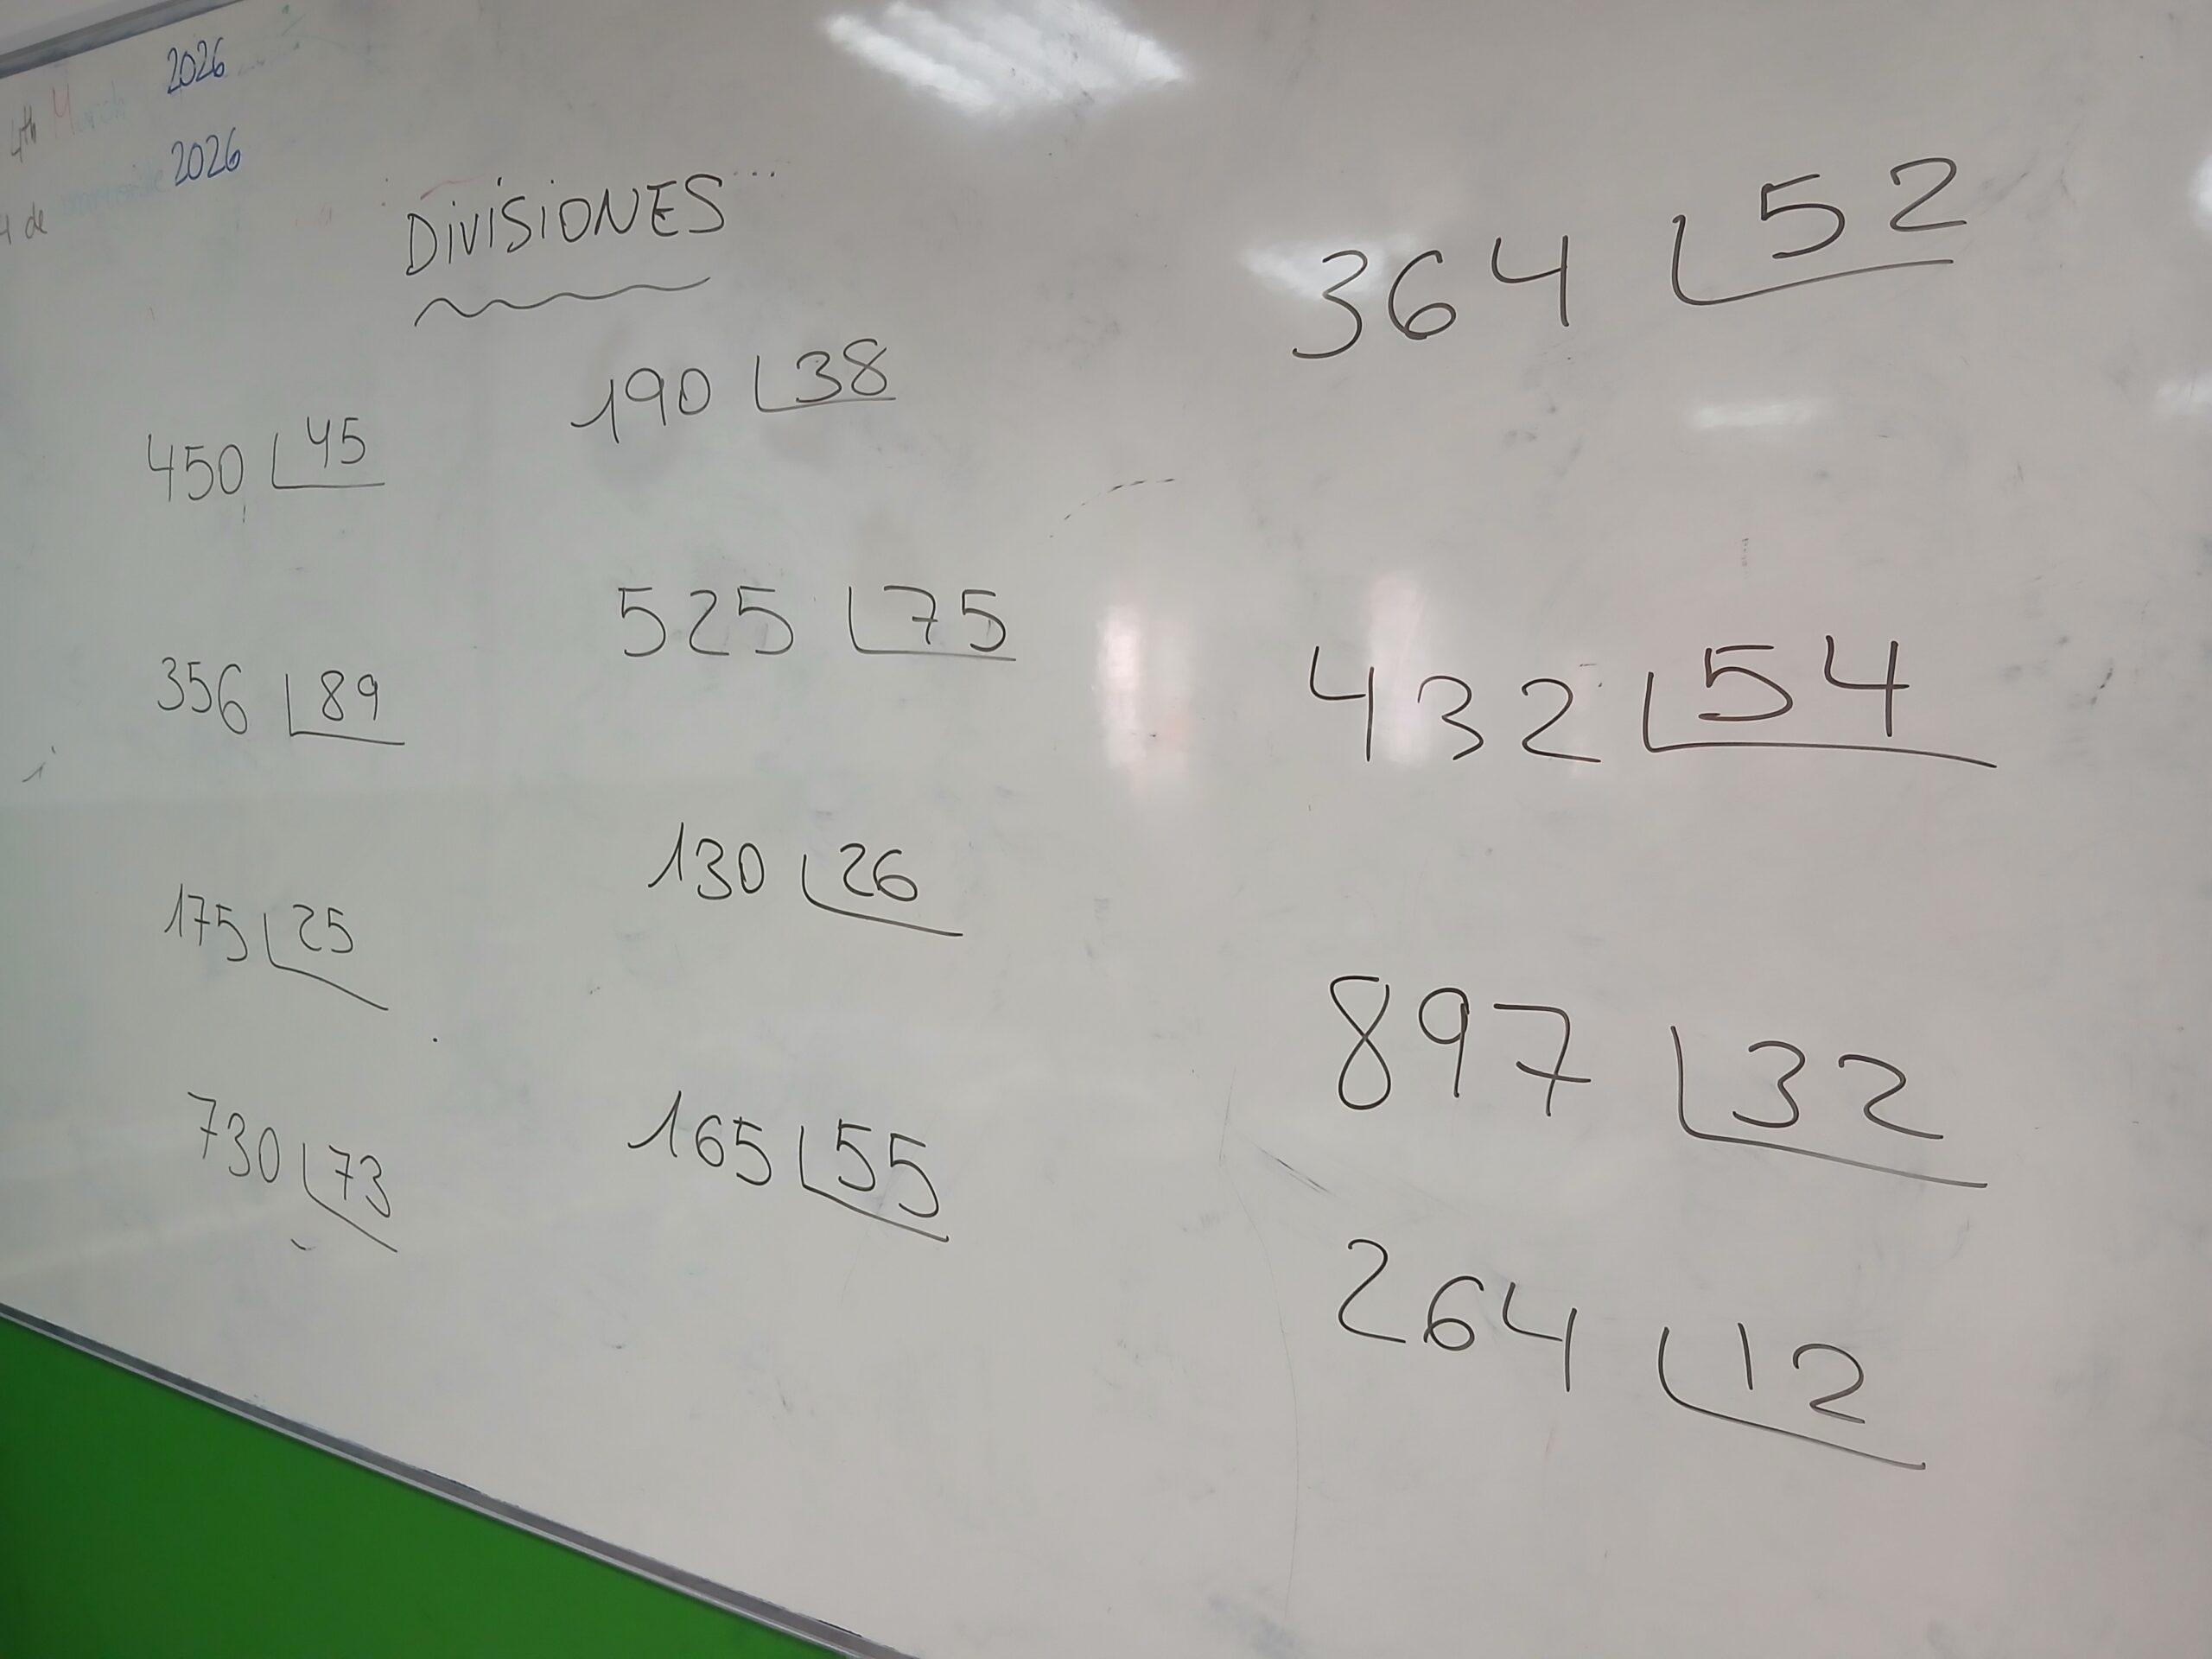 4th March 2026
4 de 2026
DIVISIONES...
450 45
356 89
175 25
730 73
190 38
525 75
130 26
165 55
364 52
432 54
897 32
264 12